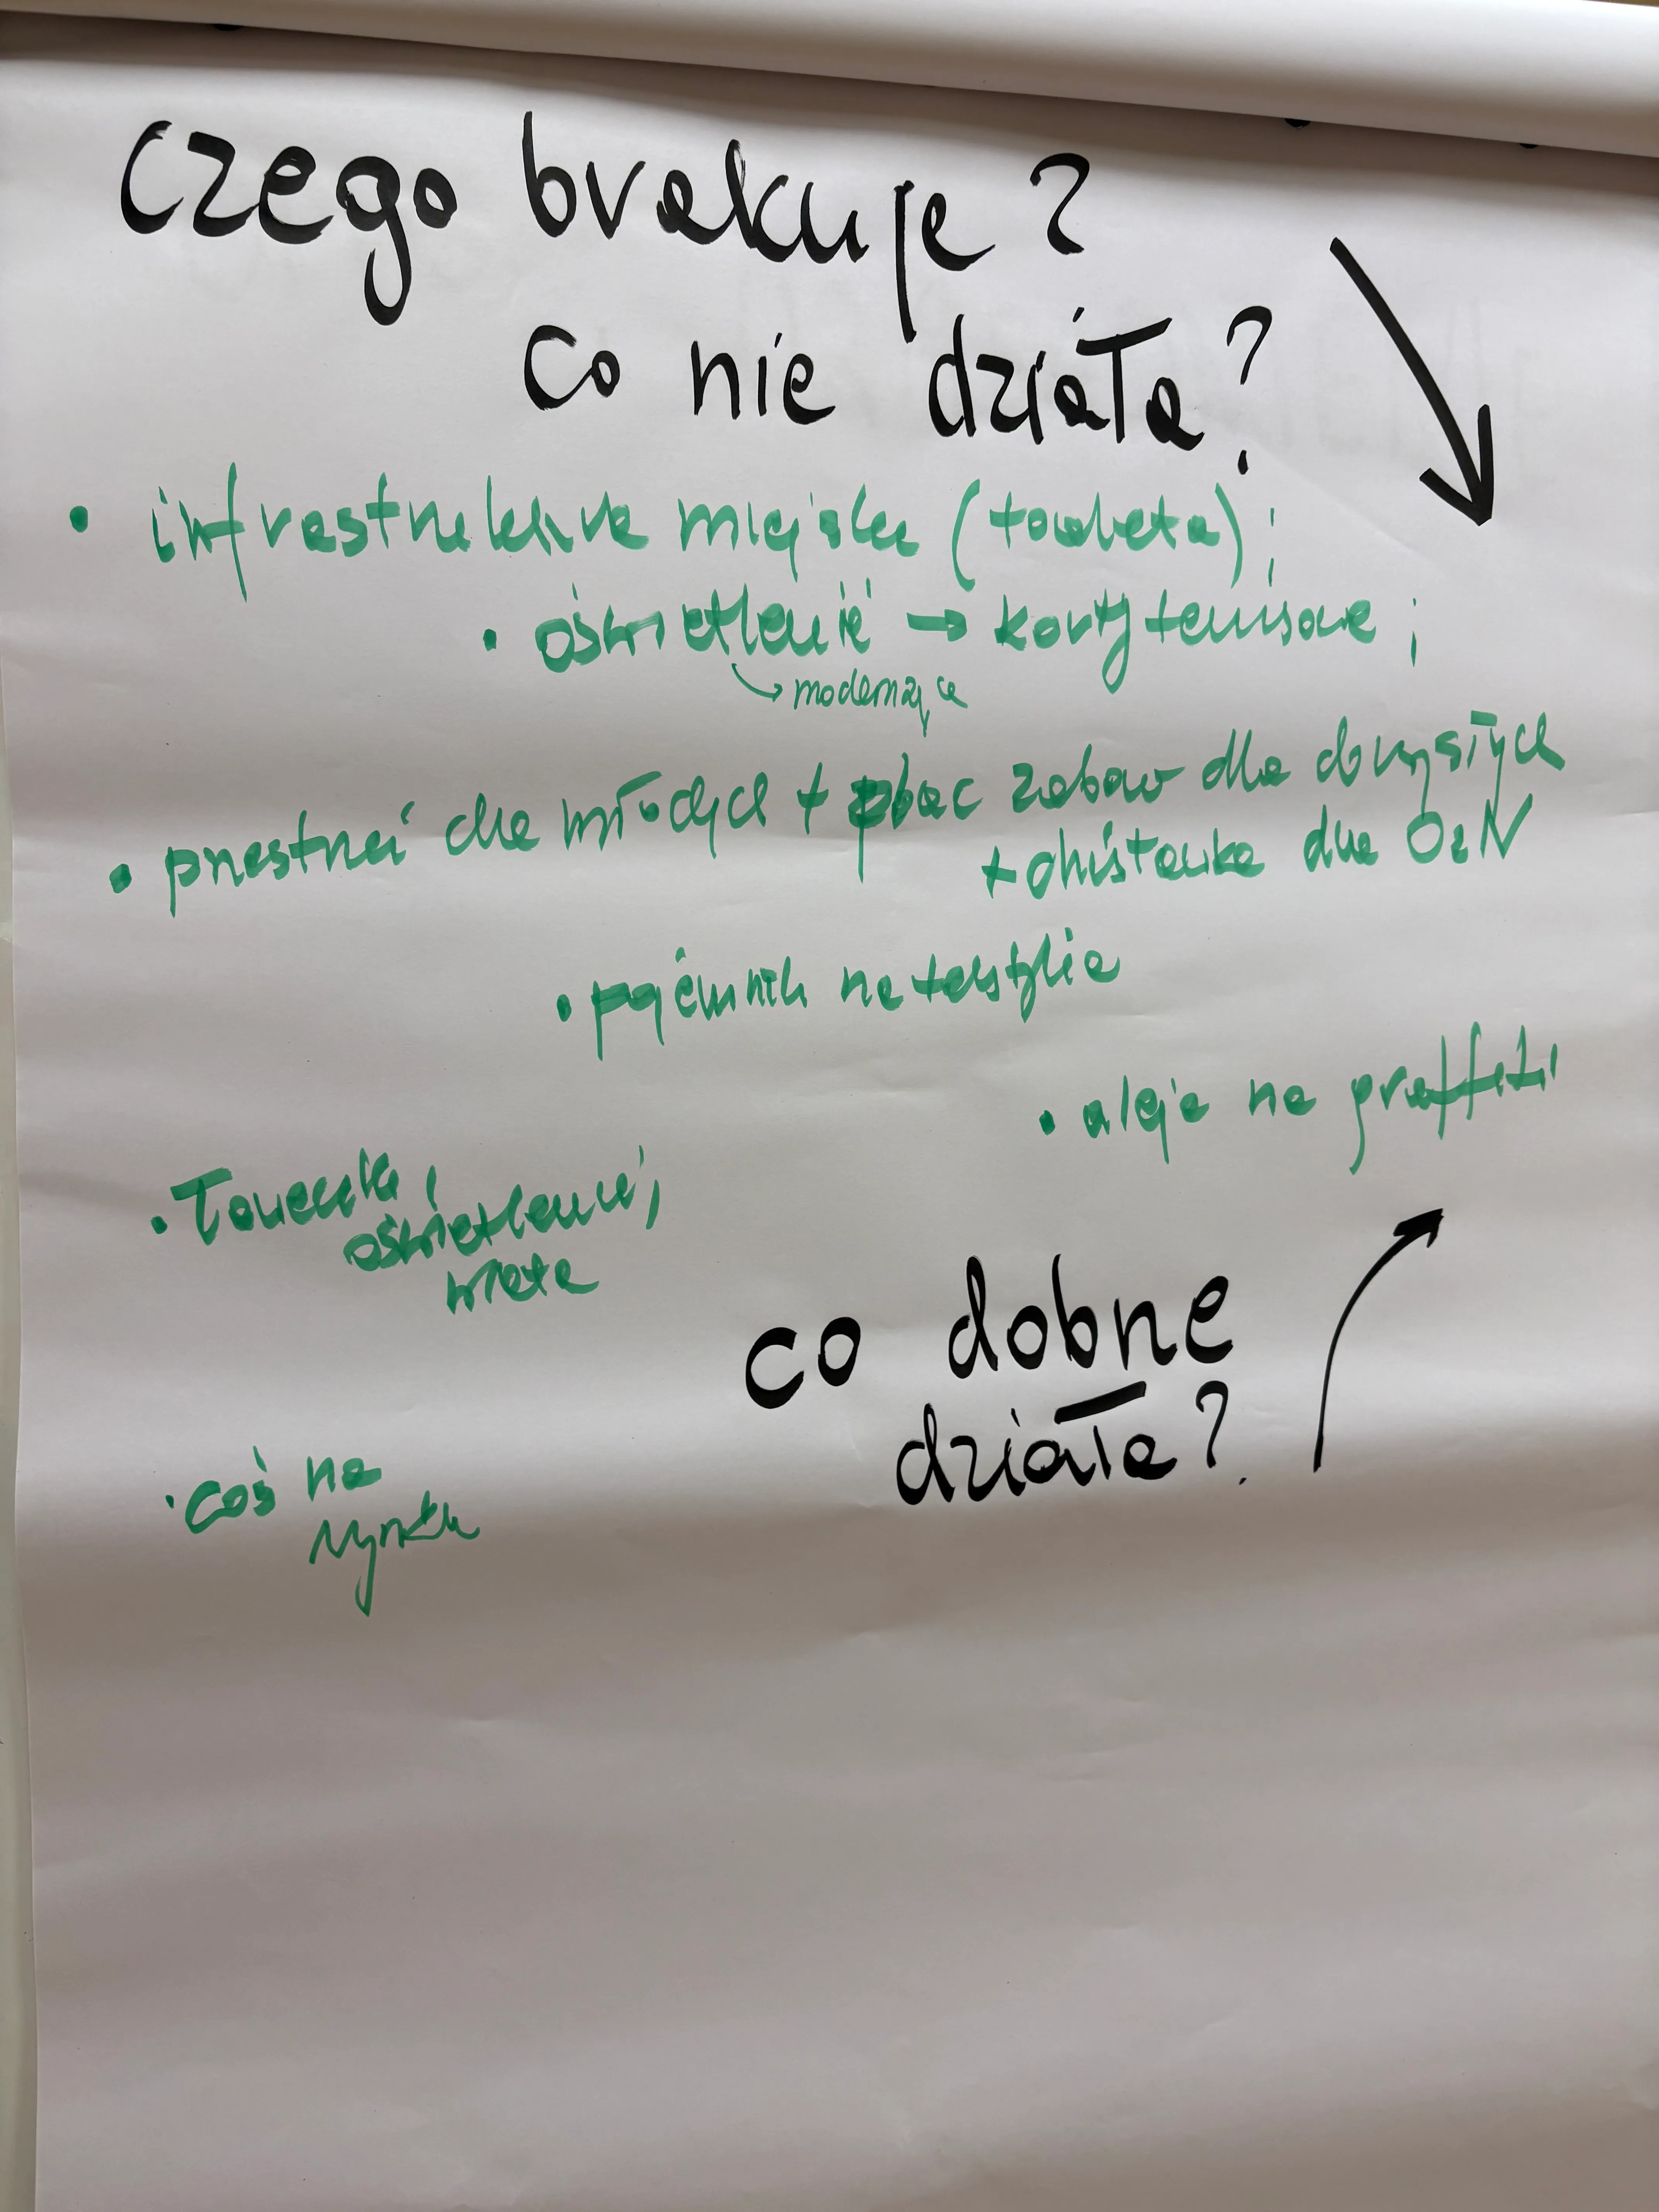 czego brakuje?
co nie działa?
• infrastruktura miejska (toaleta);
• oświetlenie → korty tenisowe;
modernizacja
• przestrzeń dla młodych + plac zabaw dla dorosłych
+ dla OzN
• pojemnik na tekstylia
• aleja na graffiti
• Ławeczki,
oświetlenie,
wiata
• coś na
rynku
co dobrze
działa?